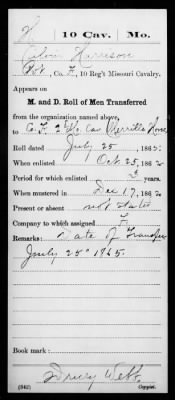 H 10 Cav. Mo.
Calvin Harrison
Pvt., Co. F, 10 Reg't Missouri Cavalry.
Appears on
M. and D. Roll of Men Transferred
from the organization named above,
to Co. F. 2 Mo. Cav Merrills Horse
Roll dated July 25, 1865.
When enlisted Oct 25, 1862
Period for which enlisted 3 years.
When mustered in Dec 17, 1862
Present or absent not stated
Company to which assigned F
Remarks: Date of Transfer
July 25" 1865.
Book mark:
Drury Webb
(342) Copyist.